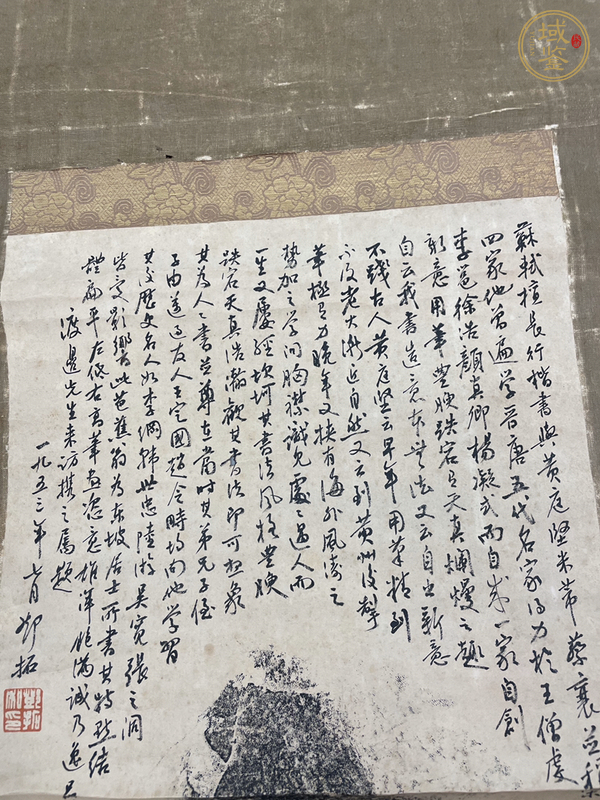 蘇軾擅長行楷書與黃庭堅米芾蔡襄並稱
四家他曾遍學晉唐五代名家得力於王僧虔
李邕徐浩顏真卿楊凝式而自成一家自創
新意用筆豐腴跌宕有天真爛熳之趣
自云我書造意本無法又云自出新意
不踐古人黃庭堅云早年用筆精到
不及老大漸近自然又云到黃州後掣
筆極有力晚年又挾有海外風濤之
勢加之學問胸襟識見處處過人而
一生又屢經坎坷其書法風格豐腴
跌宕天真浩瀚觀其書法即可想象
其為人人書並尊在當時其弟兄子侄
子由邁過友人王定國趙令時均向他學習
其後歷史名人如李綱韓世忠陸游吳寬張之洞
皆受影響此芭蕉翁為東坡居士所書其特點結
體扁平左低右高筆畫恣意雄渾飽滿誠乃逸品
渡邊先生來訪攜之屬題
一九五三年七月鄧拓
域鉴